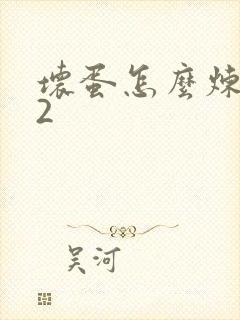 壞蛋怎麼煉
2
吴河